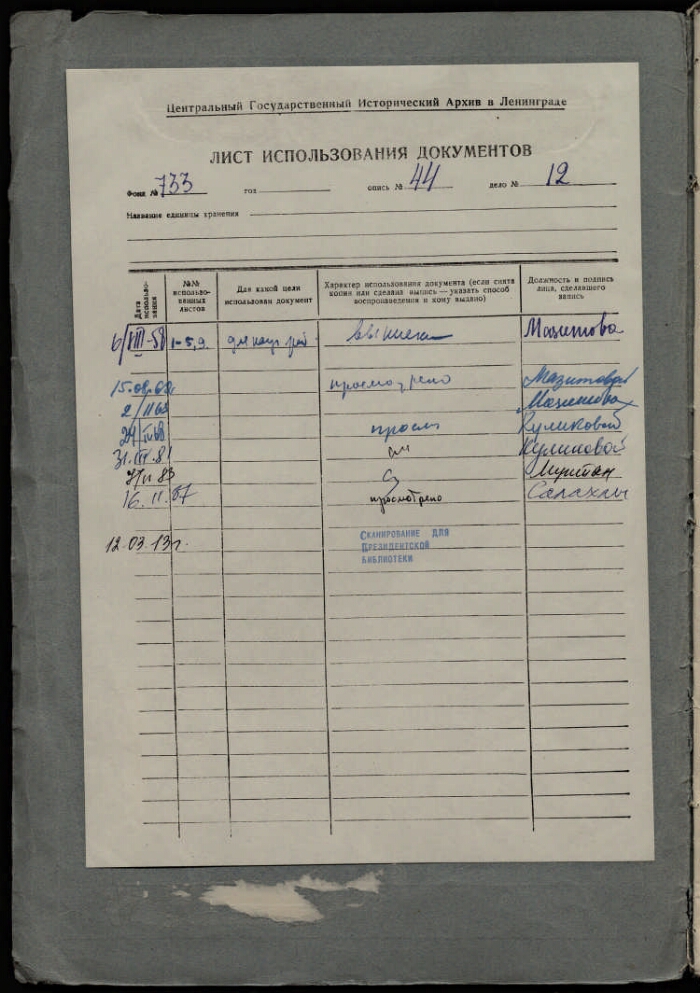 Центральный Государственный Исторический Архив в Ленинграде
ЛИСТ ИСПОЛЬЗОВАНИЯ ДОКУМЕНТОВ
Фонд № 733 год опись № 44 дело № 12
Название единицы хранения
Дата использо-вания
№№ использо-ванных листов
Для какой цели использован документ
Характер использования документа (если снята копия или сделана выпись — указать способ воспроизведения и кому выдано)
Должность и подпись лица, сделавшего запись
6/VIII-58 1-5,9. для науч. раб. выписка Мазитова
просмотрено Мазитова
Мазитова
просм Куликовой
31.III.81 Куликовой
16.11.87 просмотрено
12.03.13г. Сканирование для
Президентской
библиотеки